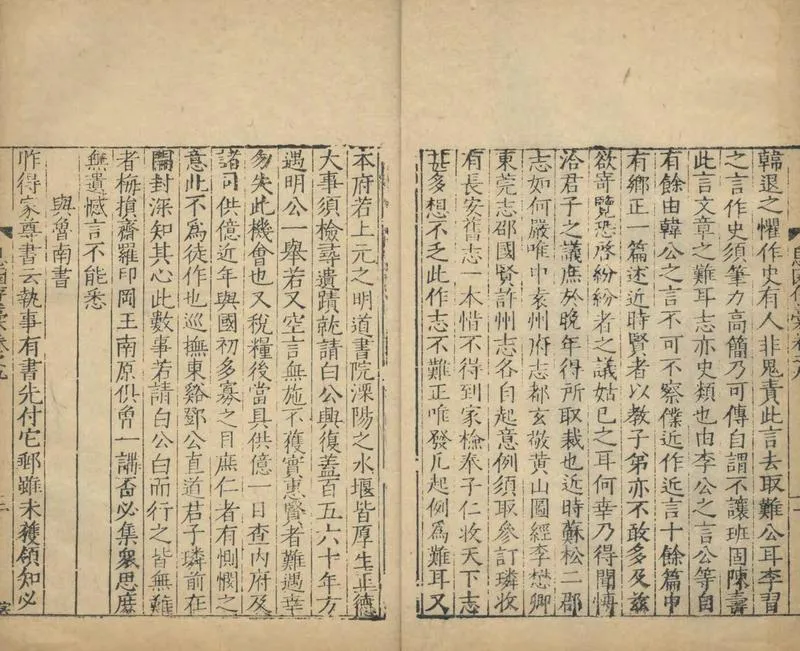 韓退之懼作史有人非鬼責此言去取難公耳李習
之言作史須筆力高簡乃可傳自謂不讓班固陳壽
此言文章之難耳志亦史類也由李公之言公等自
有餘由韓公之言不可不察僕近作近言十餘篇中
有鄉正一篇述近時賢者以教子弟亦不敢多及茲
欲寄覽恐啓紛紛者之議姑已之耳何幸乃得聞博
洽君子之議庶於晚年得所取裁也近時蘇松二郡
志如何嚴唯中袁州府志都玄敬黃山圖經李懋卿
東莞志邵國賢許州志各自起意例須取參訂璘收
有長安舊志一本惜不得到家檢奉子仁收天下志
甚多想不乏此作志不難正唯發凡起例爲難耳又
本府若上元之明道書院溧陽之水堰皆厚生正德
大事須檢尋遺蹟就請白公興復蓋百五六十年方
遇明公一舉若又空言無施不獲實惠賢者難遇幸
多失此機會也又稅糧後當具供億一目查內府及
諸司供億近年與國初多寡之目庶仁者有惻憫之
意此不爲徒作也巡撫東谿鄧公直道君子璘前在
開封深知其心此數事若請白公白而行之皆無難
者梅損齋羅印岡王南原俱曾一講否必集衆思庶
無遺憾言不能悉
與魯南書
昨得家尊書云執事有書先付它郵雖未獲領知必